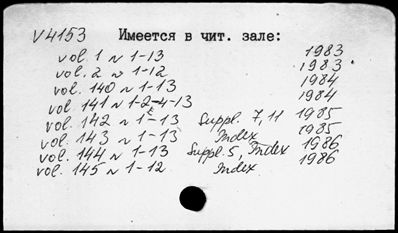 V4153 Имеется в чит. зале:
vol. 1 N 1-13 1983
vol. 2 N 1-12 1983
vol. 140 N 1-13 1984
vol. 141 N 1-2-4-13 1984
vol. 142 N 1-13 Suppl. 7, 11 1985
vol. 143 N 1-13 Index 1985
vol. 144 N 1-13 Suppl. 5, Index 1986
vol. 145 N 1-12 Index 1986